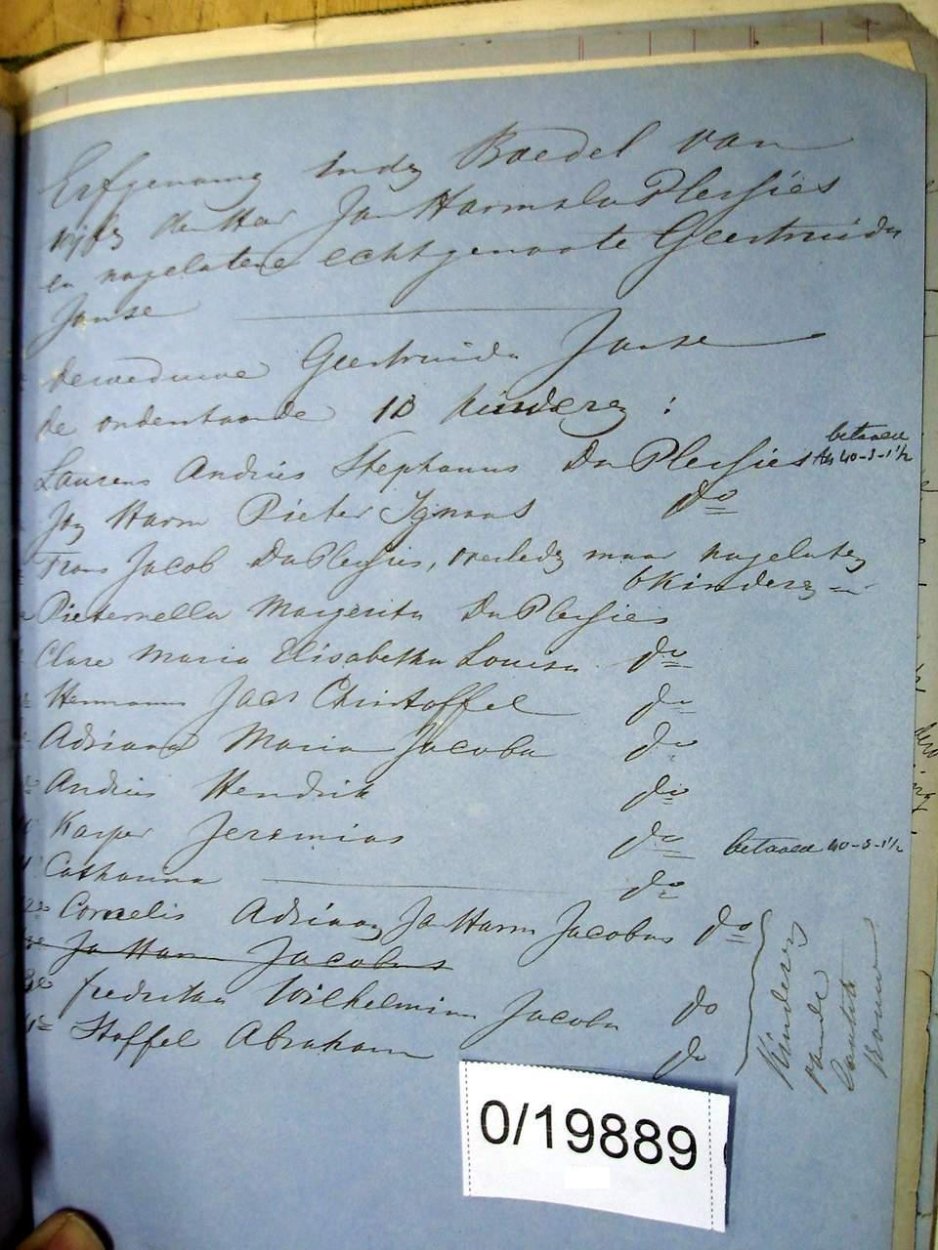 Erfgenamen in den Boedel van
wijlen den Heer Jan Harm Du Plessies
en nagelatene echtgenoote Geertruida
Janse
De weduwe Geertruida Janse
de ondenstaande 13 kinderen :
Laurens Andries Stephanus Du Plessies betaald 40-3-1½
Jan Harm Pieter Ignaas do
Frans Jacob Du Plessies, overleden maar nagelaten
6 Kinderen
Pieternella Margerita Du Plessies
Clara Maria Elisabetha Louisa do
Hermanus Jaas Christoffel do
Adriana Maria Jacoba do
Andries Hendrik do
Kasper Jeremias do betaald 40-3-1½
Catharina do
Cornelis Adriaan Jan Harm Jacobus do
Jan Harm Jacobus
fredrika Wilhelmina Jacoba do
Stoffel Abraham do
Kinderen
van de
laatste
vrouw
0/19889